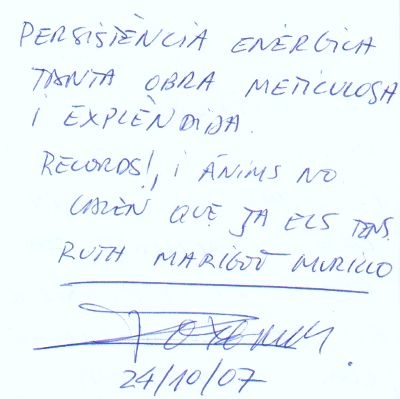 PERSISTÈNCIA ENÈRGICA
TANTA OBRA METICULOSA
I EXPLÈNDIDA.
RECORDS!, I ÀNIMS NO
CALEN QUE JA ELS TENS.
RUTH MARIGOT MURILLO
24/10/07